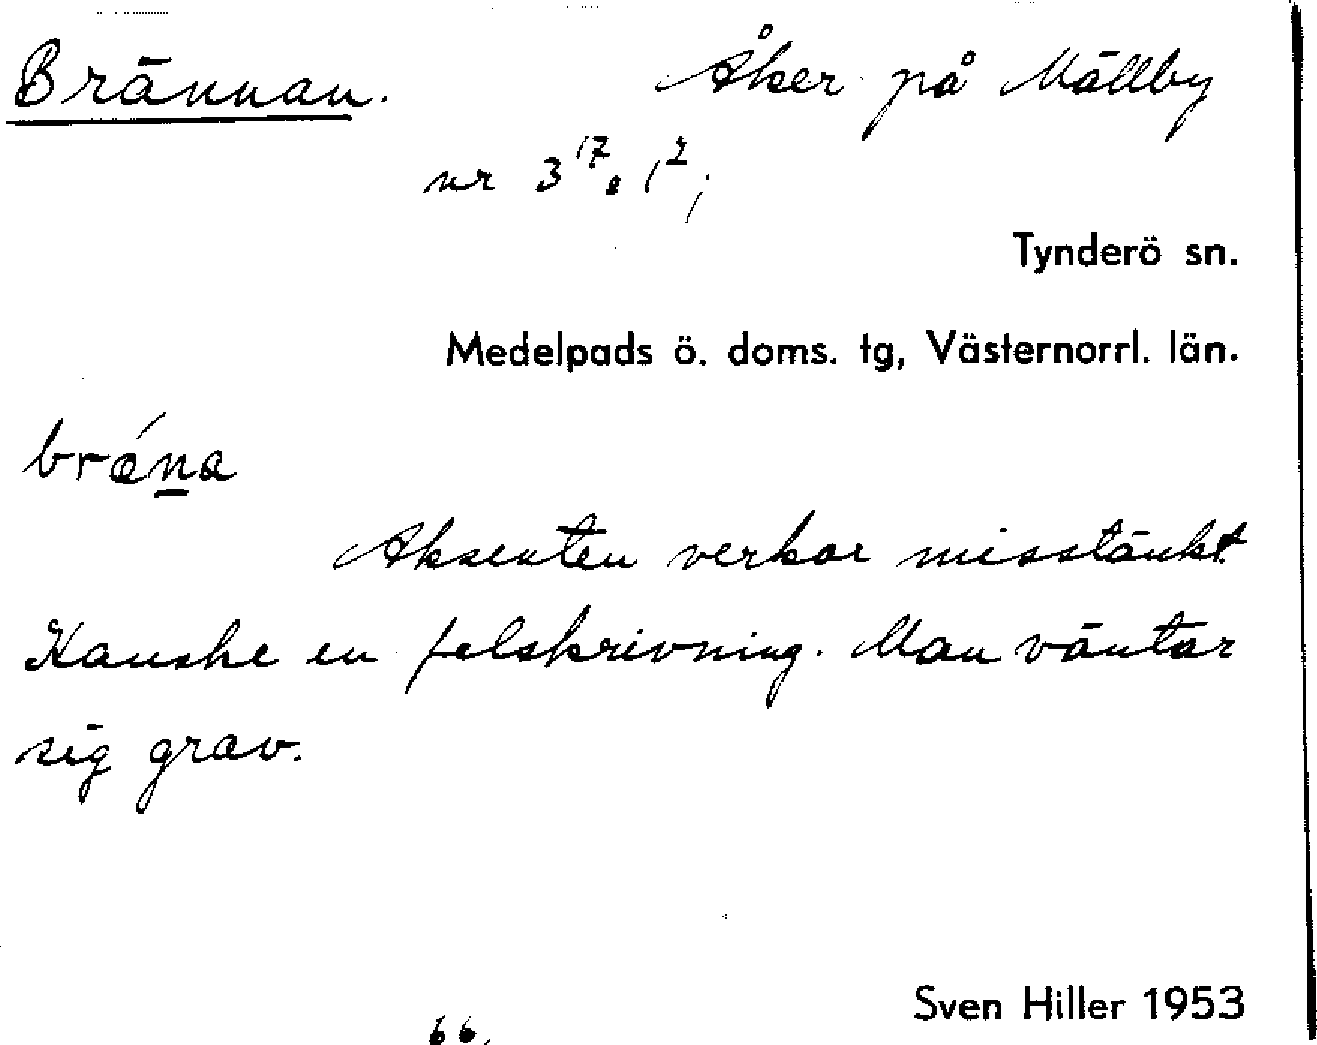 Brännan. Åker på Mällby
nr 3 17. 1 2;
Tynderö sn.
Medelpads ö. doms. tg, Västernorrl. län.
brǽna
Aksenten verkar misstänkt
Kanske en felskrivning. Man väntar
sig grav.
Sven Hiller 1953
66.